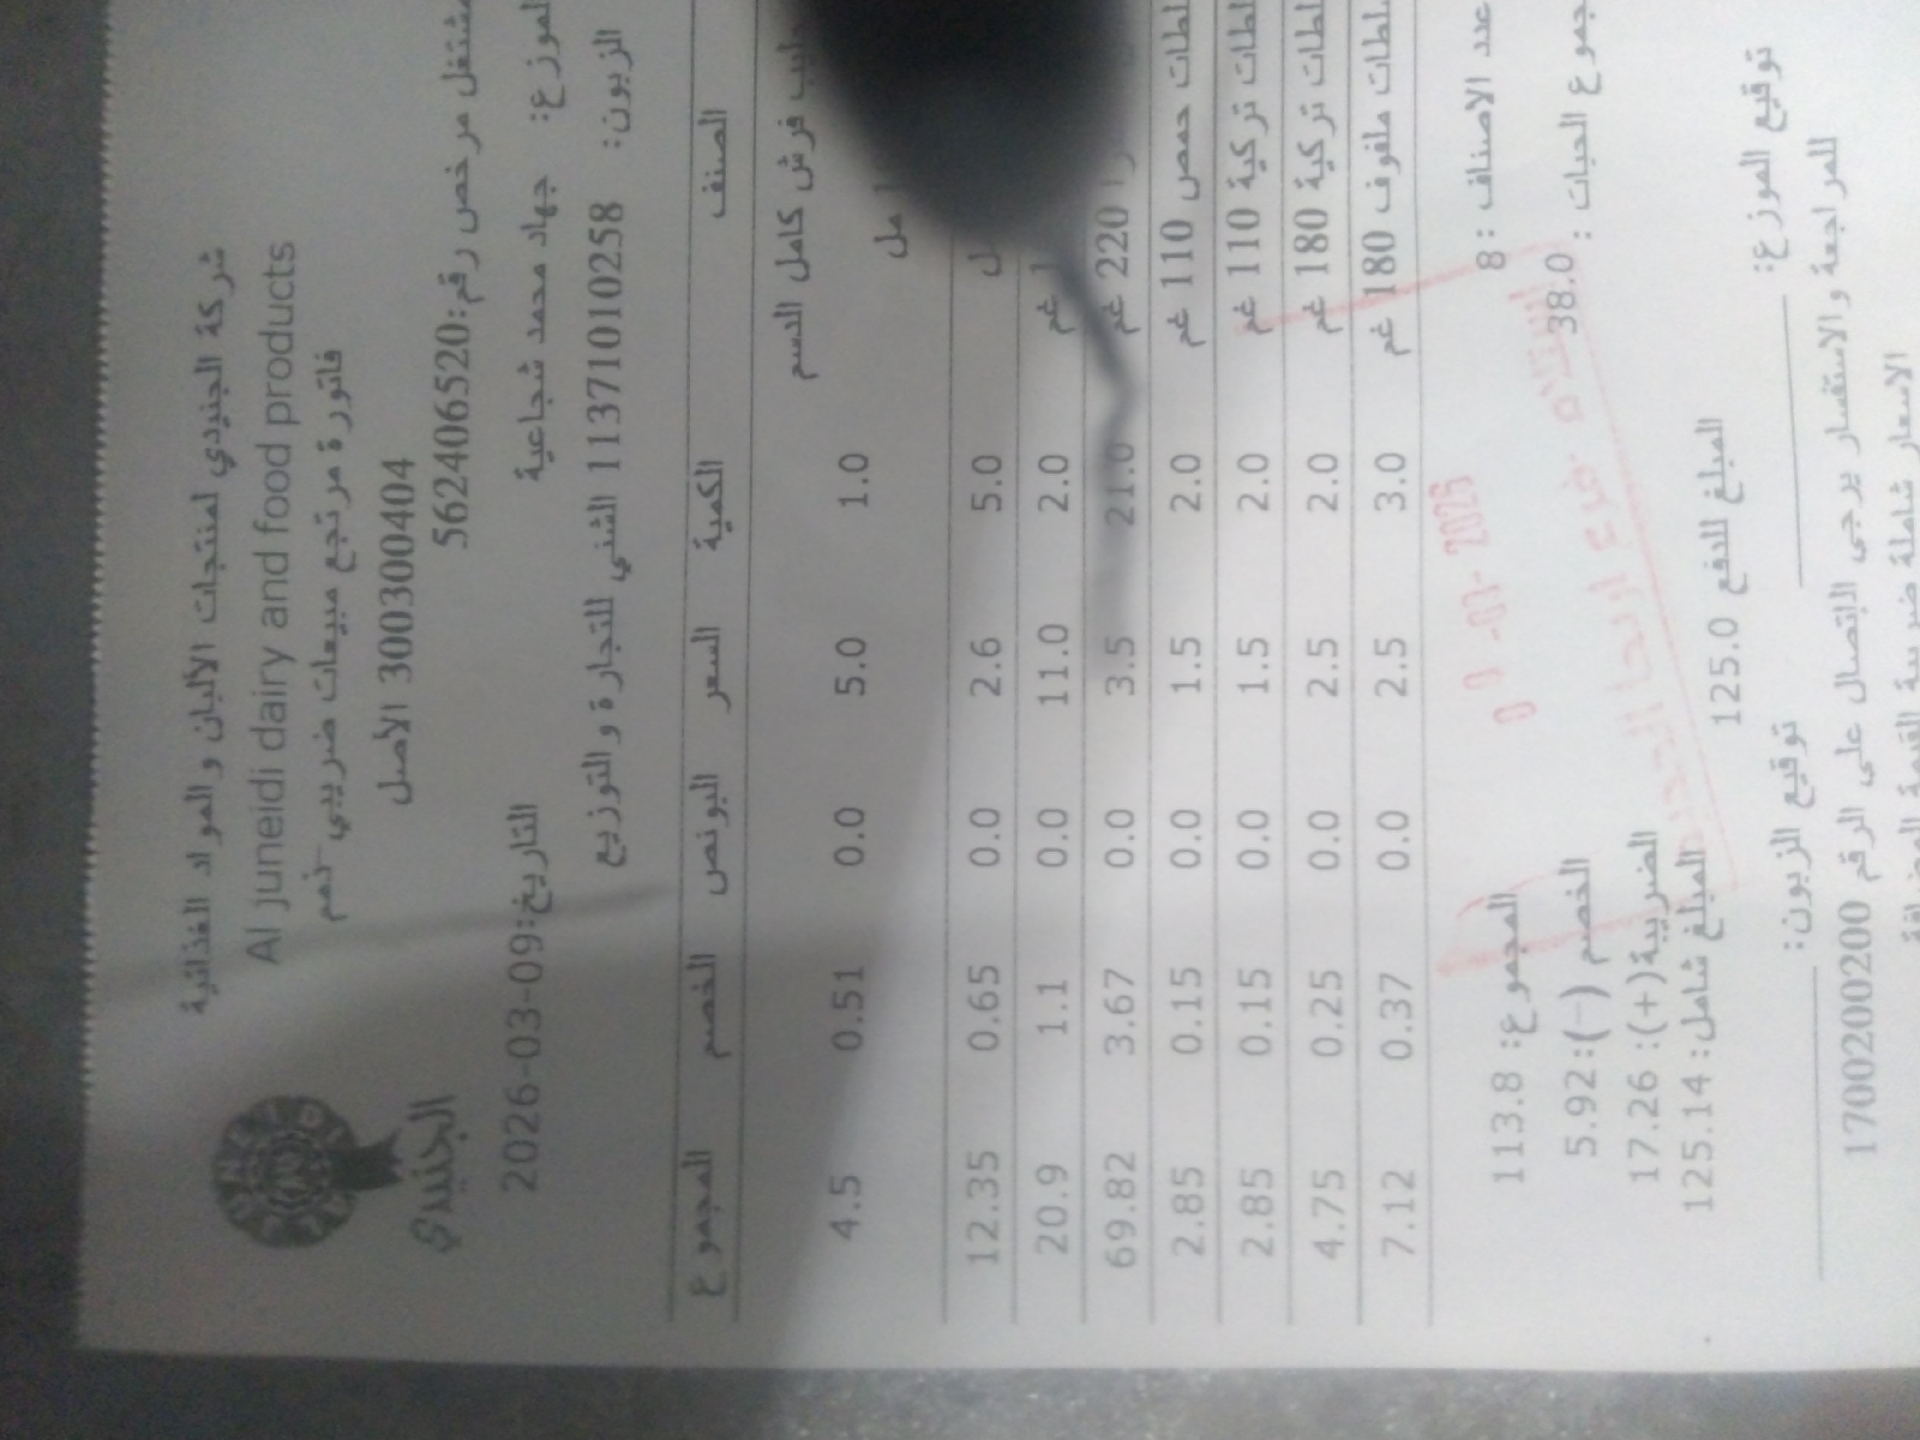 شركة الجنيدي لمنتجات الألبان والمواد الغذائية
Al juneidi dairy and food products
فاتورة مرتجع مبيعات ضريبي
300300404 الأصل
مشتغل مرخص رقم:562406520
الجنيدي
الموزع: جهاد محمد شجاعية
التاريخ:2026-03-09
الزبون: 11371010258 الشني للتجارة والتوزيع
الصنف الكمية السعر البونص الخصم المجموع
حليب فرش كامل الدسم 1.0 5.0 0.0 0.51 4.5
5.0 2.6 0.0 0.65 12.35
غم 2.0 11.0 0.0 1.1 20.9
220 غم 21.0 3.5 0.0 3.67 69.82
سلطات حمص 110 غم 2.0 1.5 0.0 0.15 2.85
سلطات تركية 110 غم 2.0 1.5 0.0 0.15 2.85
سلطات تركية 180 غم 2.0 2.5 0.0 0.25 4.75
سلطات ملفوف 180 غم 3.0 2.5 0.0 0.37 7.12
عدد الاصناف : 8
المجموع: 113.8
مجموع الحبات : 38.0
الخصم (-): 5.92
الضريبة(+): 17.26
المبلغ شامل: 125.14
المبلغ للدفع 125.0
توقيع الموزع:
توقيع الزبون:
للمراجعة والاستفسار يرجى الاتصال على الرقم 1700200200
الاسعار شاملة ضريبة القيمة المضافة